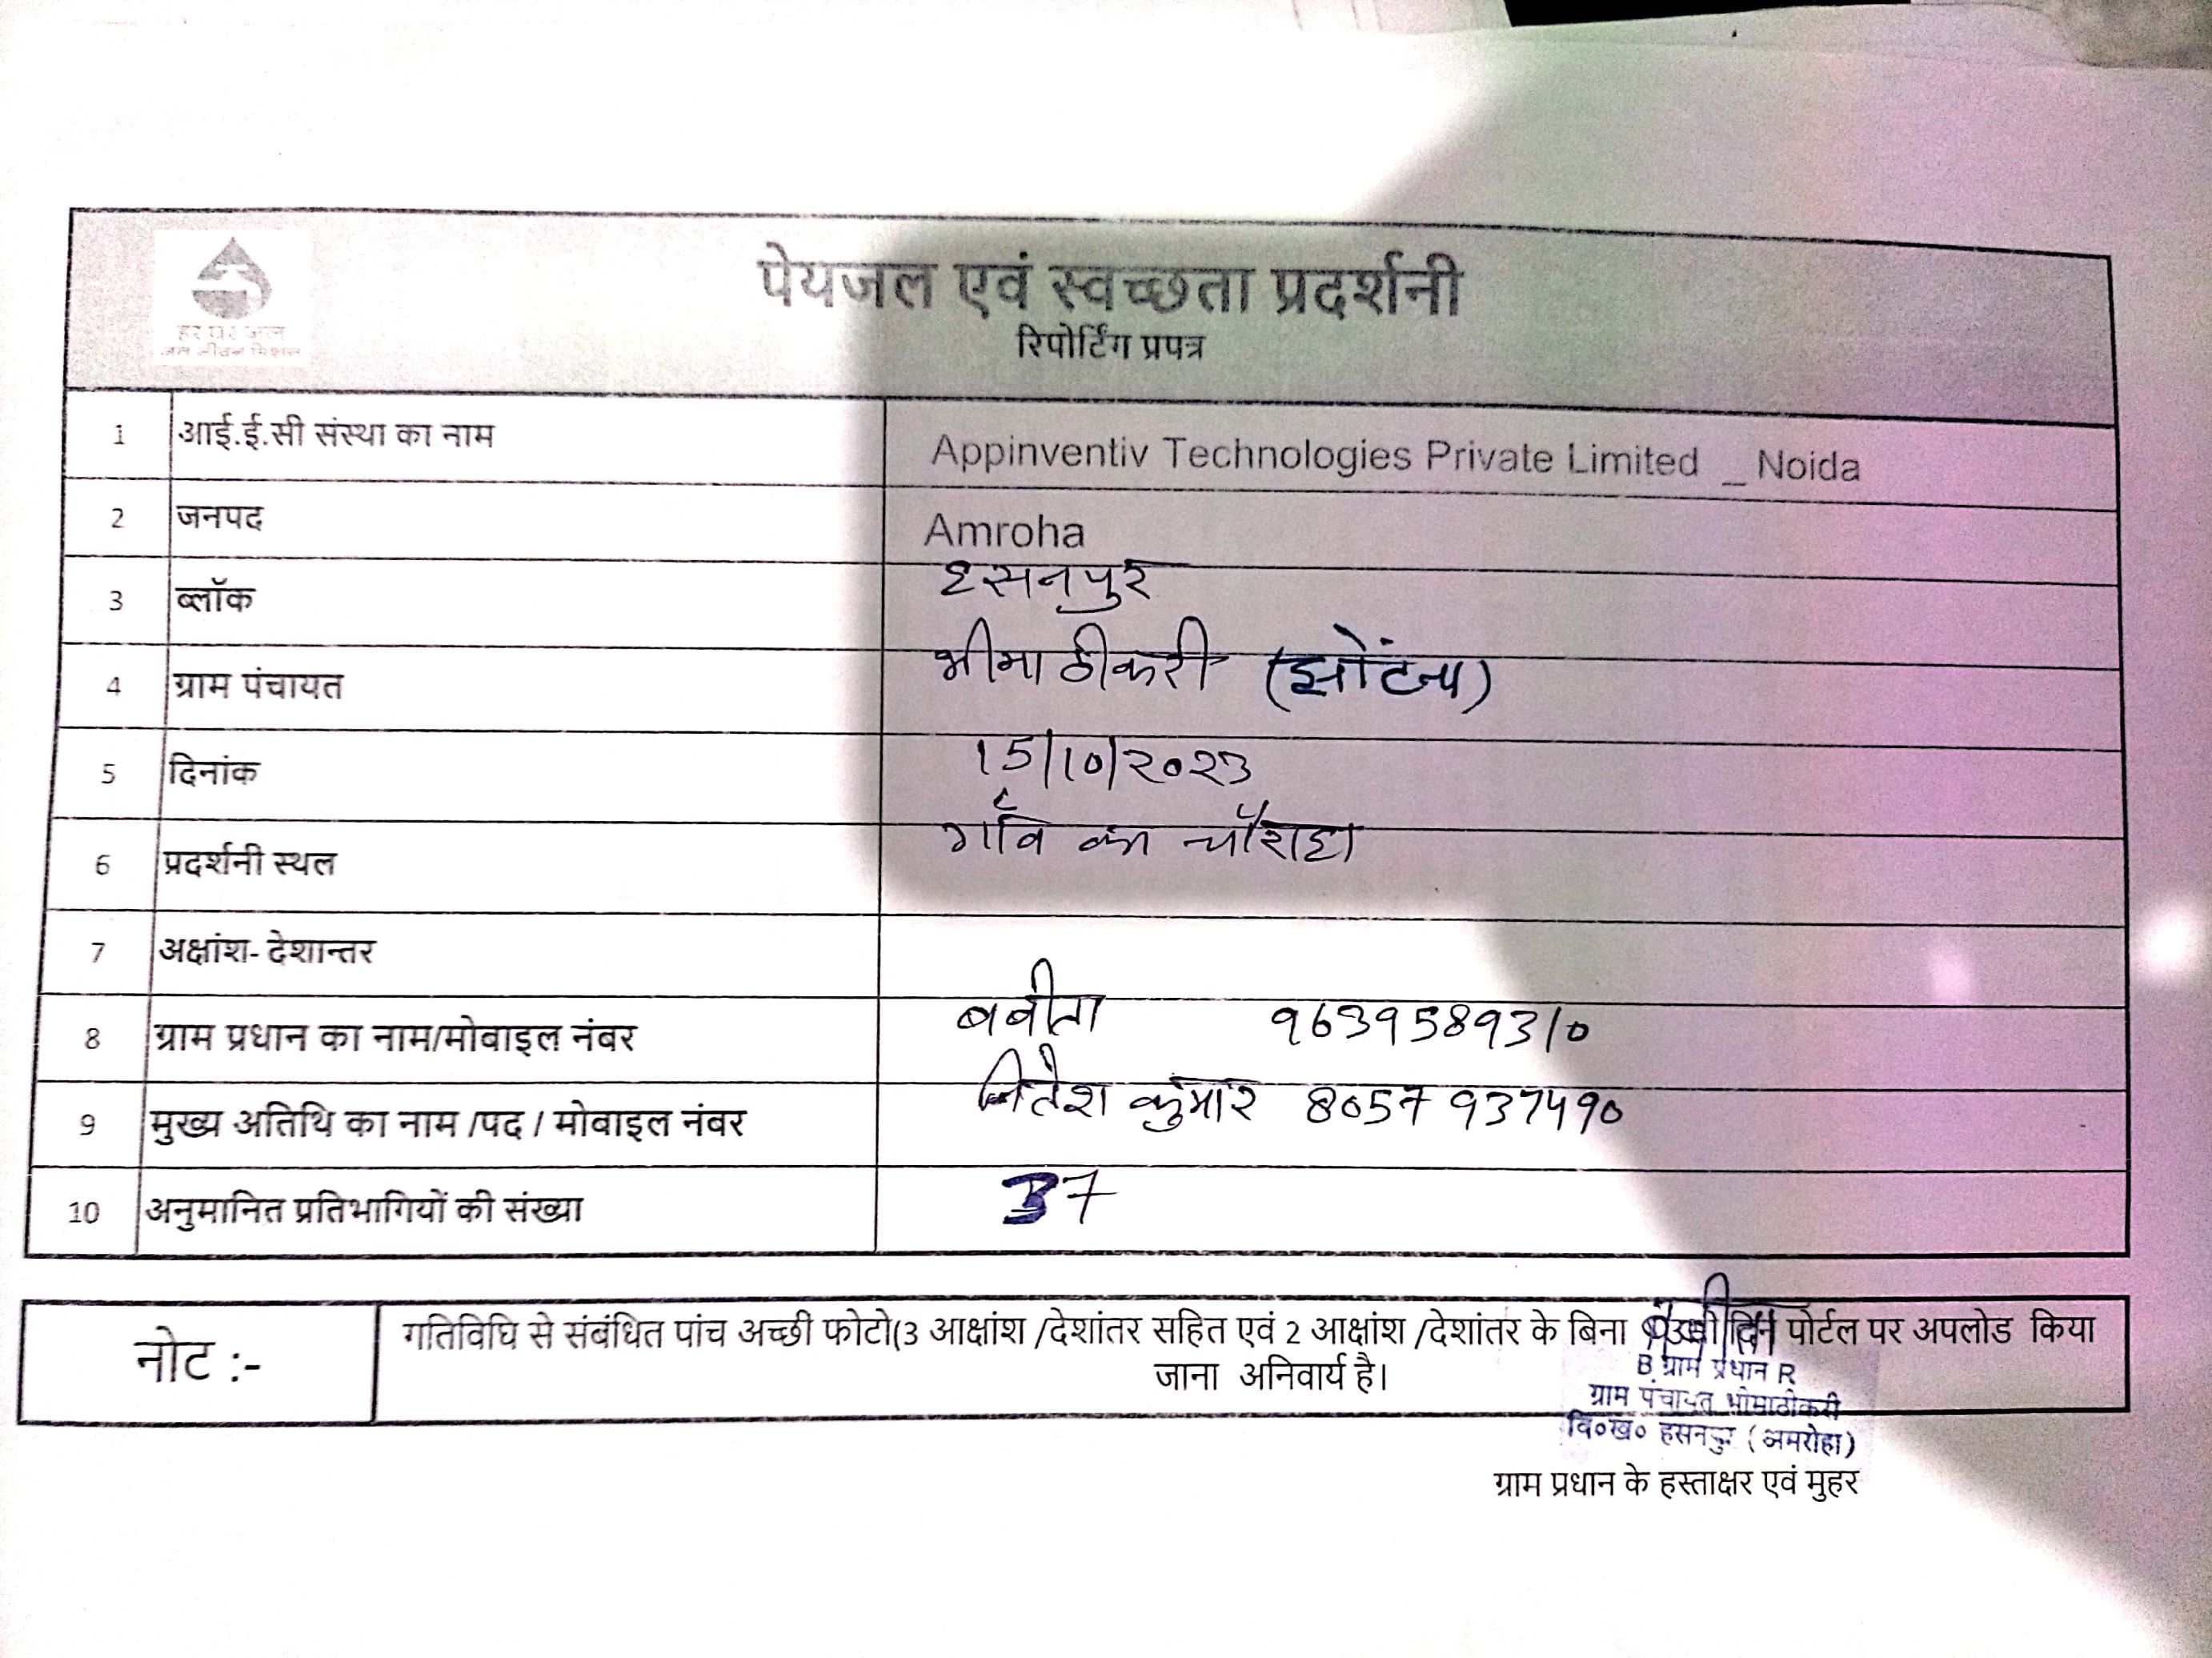 हर घर जल
जल जीवन मिशन
पेयजल एवं स्वच्छता प्रदर्शनी
रिपोर्टिंग प्रपत्र
1 आई.ई.सी संस्था का नाम Appinventiv Technologies Private Limited _ Noida
2 जनपद Amroha
3 ब्लॉक हसनपुर
4 ग्राम पंचायत भीमाठीकरी
5 दिनांक 15/10/2023
6 प्रदर्शनी स्थल गाँव का चौराहा
7 अक्षांश- देशान्तर
8 ग्राम प्रधान का नाम/मोबाइल नंबर बबीता 9639589310
9 मुख्य अतिथि का नाम /पद / मोबाइल नंबर कुमार 8057937490
10 अनुमानित प्रतिभागियों की संख्या 37
नोट :- गतिविधि से संबंधित पांच अच्छी फोटो(3 आक्षांश /देशांतर सहित एवं 2 आक्षांश /देशांतर के बिना पोर्टल पर अपलोड किया
जाना अनिवार्य है।
ग्राम प्रधान
ग्राम पंचायत भीमाठीकरी
वि०ख० हसनपुर (अमरोहा)
ग्राम प्रधान के हस्ताक्षर एवं मुहर